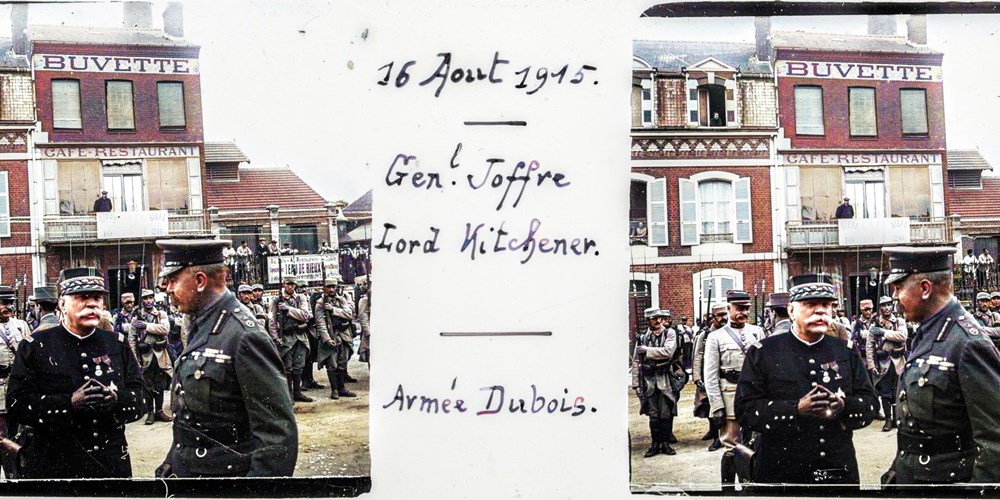 BUVETTE
CAFE-RESTAURANT
16 Aout 1915.
Gen.l Joffre
Lord Kitchener.
Armée Dubois.
BUVETTE
CAFE-RESTAURANT